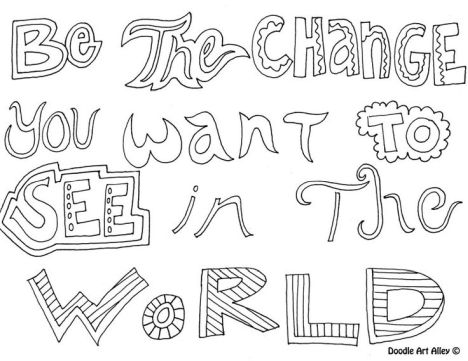 Be The CHANGE
You want TO
SEE in The
WoRLD
Doodle Art Alley ©